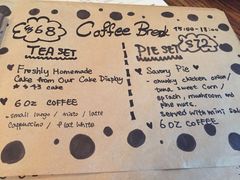 Coffee Break
15:00 - 18:00
$68
TEA SET
♥ Freshly Homemade
Cake from Our Cake Display
♥ 6 OZ COFFEE
- small / latte
Cappuccino / Flat White
$72
PIE SET
♥ Savory Pie
- chunky chicken onion /
tuna, sweet corn /
spinach, mushroom and
pine nuts.
served with mini sal
♥ 6 OZ COFFEE